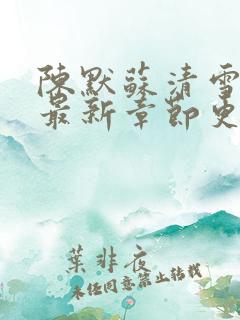 陳默蘇清雪
最新章節更
葉非夜
未經同意禁止轉載